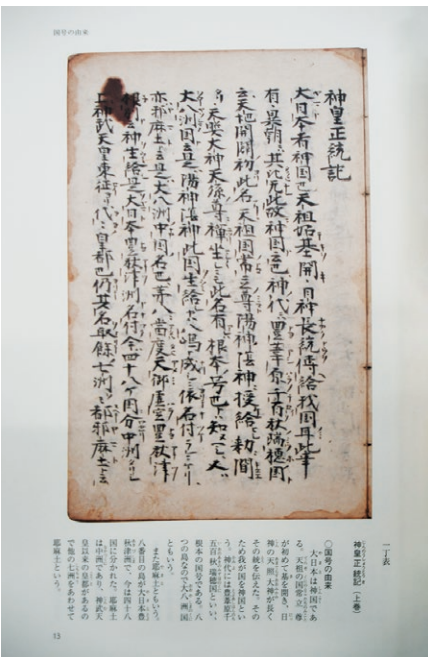 国号の由来
神皇正統記
大日本者神国也天祖始基開日神長統傳給我国耳此事
有異朝其比无此故神国云也神代豊葦原千五百秋瑞穂国
云天地開闢初此名天祖国常立尊陽神陰神授給勅聞
天照大神天孫尊禅坐此名有根本号也知
大八洲国云是陽神陰神此国生給八嶋成依名付
亦耶麻土云是大八洲中国名也第八當度天御虚空豊秋津
根別云神生給是大日本豊秋津洲名付今四十八ケ国分中洲
上神武天皇東征代々皇都也仍其名取餘七洲都耶麻土云
一丁表
神皇正統記(上巻)
○国号の由来
大日本は神国であ
る。天祖の国常立尊
が初めて基を開き、日
神の天照大神が長く
その統を伝えた。その
ため我が国を神国とい
う。神代には豊葦原千
五百秋瑞穂国といい、
根本の国号である。八
つの島なので大八洲国
ともいう。
また耶麻土ともいう。
八番目の島が大日本豊
秋津洲で、今は四十八
国に分かれた。耶麻土
は中洲であり、神武天
皇以来の皇都があるの
で他の七洲をあわせて
耶麻土という。
13